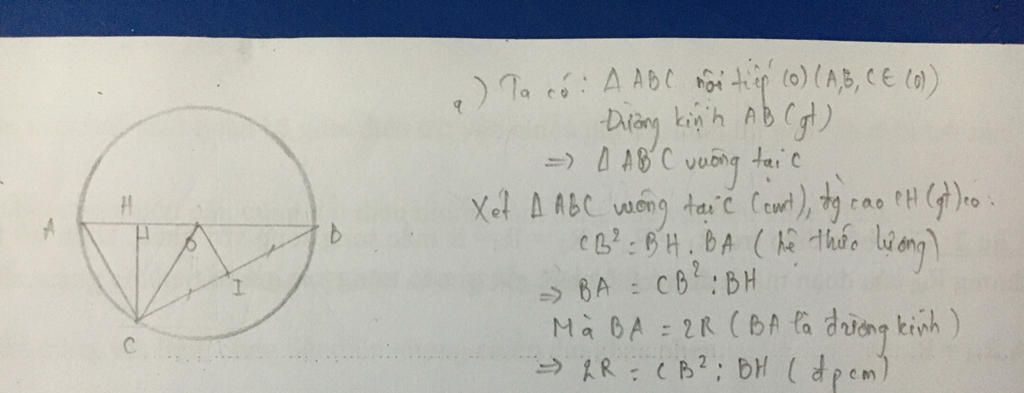 a) Ta có: Δ ABC nội tiếp (O) (A,B, C ∈ (O))
Đường kính AB (gt)
=> Δ ABC vuông tại C
Xét Δ ABC vuông tại C (cmt), đg cao CH (gt) có:
CB² = BH . BA ( hệ thức lượng)
=> BA = CB² : BH
Mà BA = 2R ( BA là đường kính )
=> 2R = CB² : BH ( đpcm)
A H O B
I
C